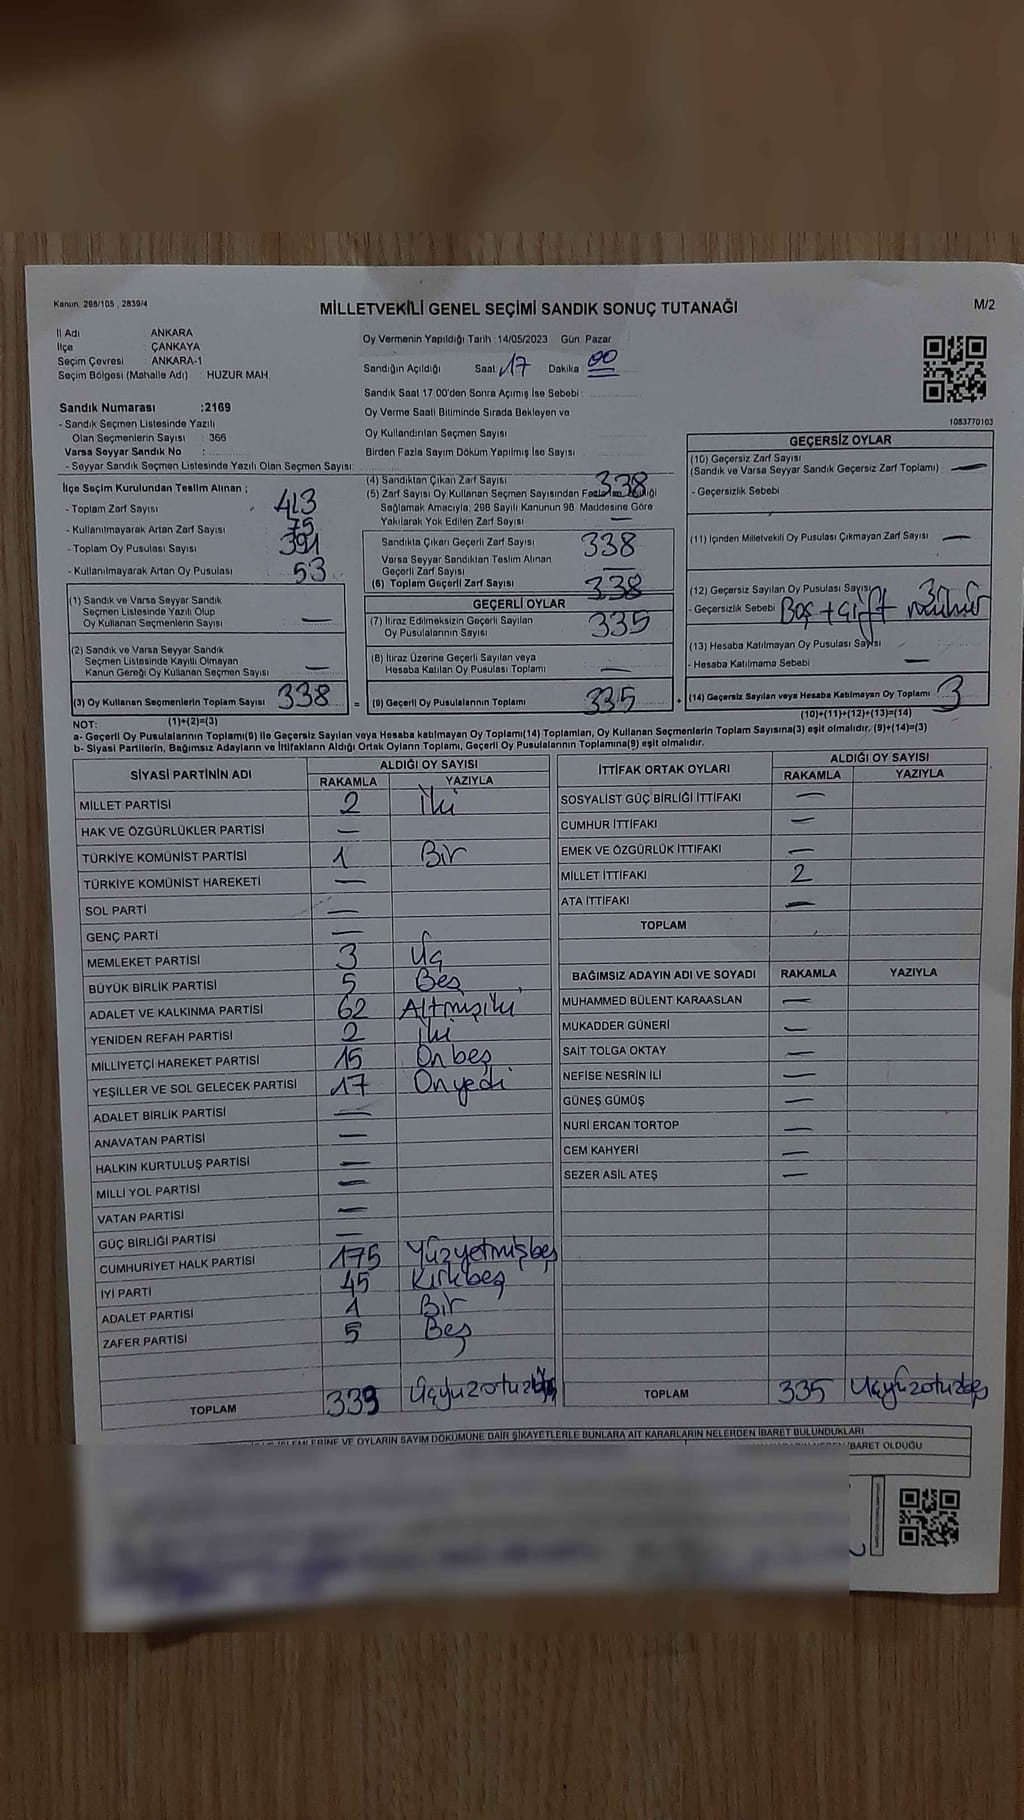 Kanun, 298/105 , 2839/4
MİLLETVEKİLİ GENEL SEÇİMİ SANDIK SONUÇ TUTANAĞI
M/2
İl Adı ANKARA
İlçe ÇANKAYA
Seçim Çevresi ANKARA-1
Seçim Bölgesi (Mahalle Adı) : HUZUR MAH
Sandık Numarası :2169
- Sandık Seçmen Listesinde Yazılı
Olan Seçmenlerin Sayısı : 366
Varsa Seyyar Sandık No :
- Seyyar Sandık Seçmen Listesinde Yazılı Olan Seçmen Sayısı:
Oy Vermenin Yapıldığı Tarih :14/05/2023 Gün: Pazar
Sandığın Açıldığı Saat 17 Dakika 00
Sandık Saat 17:00'den Sonra Açılmış İse Sebebi :
Oy Verme Saati Bitiminde Sırada Bekleyen ve
Oy Kullandırılan Seçmen Sayısı
Birden Fazla Sayım Döküm Yapılmış İse Sayısı
1053770103
İlçe Seçim Kurulundan Teslim Alınan ;
- Toplam Zarf Sayısı 413
- Kullanılmayarak Artan Zarf Sayısı 75
- Toplam Oy Pusulası Sayısı 391
- Kullanılmayarak Artan Oy Pusulası 53
(1) Sandık ve Varsa Seyyar Sandık
Seçmen Listesinde Yazılı Olup
Oy Kullanan Seçmenlerin Sayısı —
(2) Sandık ve Varsa Seyyar Sandık
Seçmen Listesinde Kayıtlı Olmayan
Kanun Gereği Oy Kullanan Seçmen Sayısı —
(3) Oy Kullanan Seçmenlerin Toplam Sayısı 338 =
(4) Sandıktan Çıkan Zarf Sayısı 338
(5) Zarf Sayısı Oy Kullanan Seçmen Sayısından
Sağlamak Amacıyla, 298 Sayılı Kanunun 98. Maddesine Göre
Yakılarak Yok Edilen Zarf Sayısı —
Sandıkta Çıkan Geçerli Zarf Sayısı 338
Varsa Seyyar Sandıktan Teslim Alınan
Geçerli Zarf Sayısı —
(6) Toplam Geçerli Zarf Sayısı 338
GEÇERLİ OYLAR
(7) İtiraz Edilmeksizin Geçerli Sayılan
Oy Pusulalarının Sayısı 335
(8) İtiraz Üzerine Geçerli Sayılan veya
Hesaba Katılan Oy Pusulası Toplamı —
(9) Geçerli Oy Pusulalarının Toplamı 335 +
GEÇERSİZ OYLAR
(10) Geçersiz Zarf Sayısı
(Sandık ve Varsa Seyyar Sandık Geçersiz Zarf Toplamı) —
- Geçersizlik Sebebi
(11) İçinden Milletvekili Oy Pusulası Çıkmayan Zarf Sayısı —
(12) Geçersiz Sayılan Oy Pusulası Sayısı 3
- Geçersizlik Sebebi Boş + çift mühür
(13) Hesaba Katılmayan Oy Pusulası Sayısı
- Hesaba Katılmama Sebebi —
(14) Geçersiz Sayılan veya Hesaba Katılmayan Oy Toplamı 3
(10)+(11)+(12)+(13)=(14)
NOT: (1)+(2)=(3)
a- Geçerli Oy Pusulalarının Toplamı(9) ile Geçersiz Sayılan veya Hesaba Katılmayan Oy Toplamı(14) Toplamları, Oy Kullanan Seçmenlerin Toplam Sayısına(3) eşit olmalıdır. (9)+(14)=(3)
b- Siyasi Partilerin, Bağımsız Adayların ve İttifakların Aldığı Ortak Oyların Toplamı, Geçerli Oy Pusulalarının Toplamına(9) eşit olmalıdır.
SİYASİ PARTİNİN ADI ALDIĞI OY SAYISI
RAKAMLA YAZIYLA
MİLLET PARTİSİ 2 İki
HAK VE ÖZGÜRLÜKLER PARTİSİ —
TÜRKİYE KOMÜNİST PARTİSİ 1 Bir
TÜRKİYE KOMÜNİST HAREKETİ —
SOL PARTİ —
GENÇ PARTİ —
MEMLEKET PARTİSİ 3 Üç
BÜYÜK BİRLİK PARTİSİ 5 Beş
ADALET VE KALKINMA PARTİSİ 62 Altmışiki
YENİDEN REFAH PARTİSİ 2 İki
MİLLİYETÇİ HAREKET PARTİSİ 15 Onbeş
YEŞİLLER VE SOL GELECEK PARTİSİ 17 Onyedi
ADALET BİRLİK PARTİSİ —
ANAVATAN PARTİSİ —
HALKIN KURTULUŞ PARTİSİ —
MİLLİ YOL PARTİSİ —
VATAN PARTİSİ —
GÜÇ BİRLİĞİ PARTİSİ —
CUMHURİYET HALK PARTİSİ 175 Yüzyetmişbeş
İYİ PARTİ 45 Kırkbeş
ADALET PARTİSİ 1 Bir
ZAFER PARTİSİ 5 Beş
TOPLAM
İTTİFAK ORTAK OYLARI ALDIĞI OY SAYISI
RAKAMLA YAZIYLA
SOSYALİST GÜÇ BİRLİĞİ İTTİFAKI —
CUMHUR İTTİFAKI —
EMEK VE ÖZGÜRLÜK İTTİFAKI —
MİLLET İTTİFAKI 2
ATA İTTİFAKI —
TOPLAM
BAĞIMSIZ ADAYIN ADI VE SOYADI RAKAMLA YAZIYLA
MUHAMMED BÜLENT KARAASLAN —
MUKADDER GÜNERİ —
SAİT TOLGA OKTAY —
NEFİSE NESRİN İLİ —
GÜNEŞ GÜMÜŞ —
NURİ ERCAN TORTOP —
CEM KAHYERİ —
SEZER ASİL ATEŞ —
TOPLAM 335 Üçyüzotuzbeş
İŞLEMLERİNE VE OYLARIN SAYIM DÖKÜMÜNE DAİR ŞİKAYETLERLE BUNLARA AİT KARARLARIN NELERDEN İBARET BULUNDUKLARI
İBARET OLDUĞU